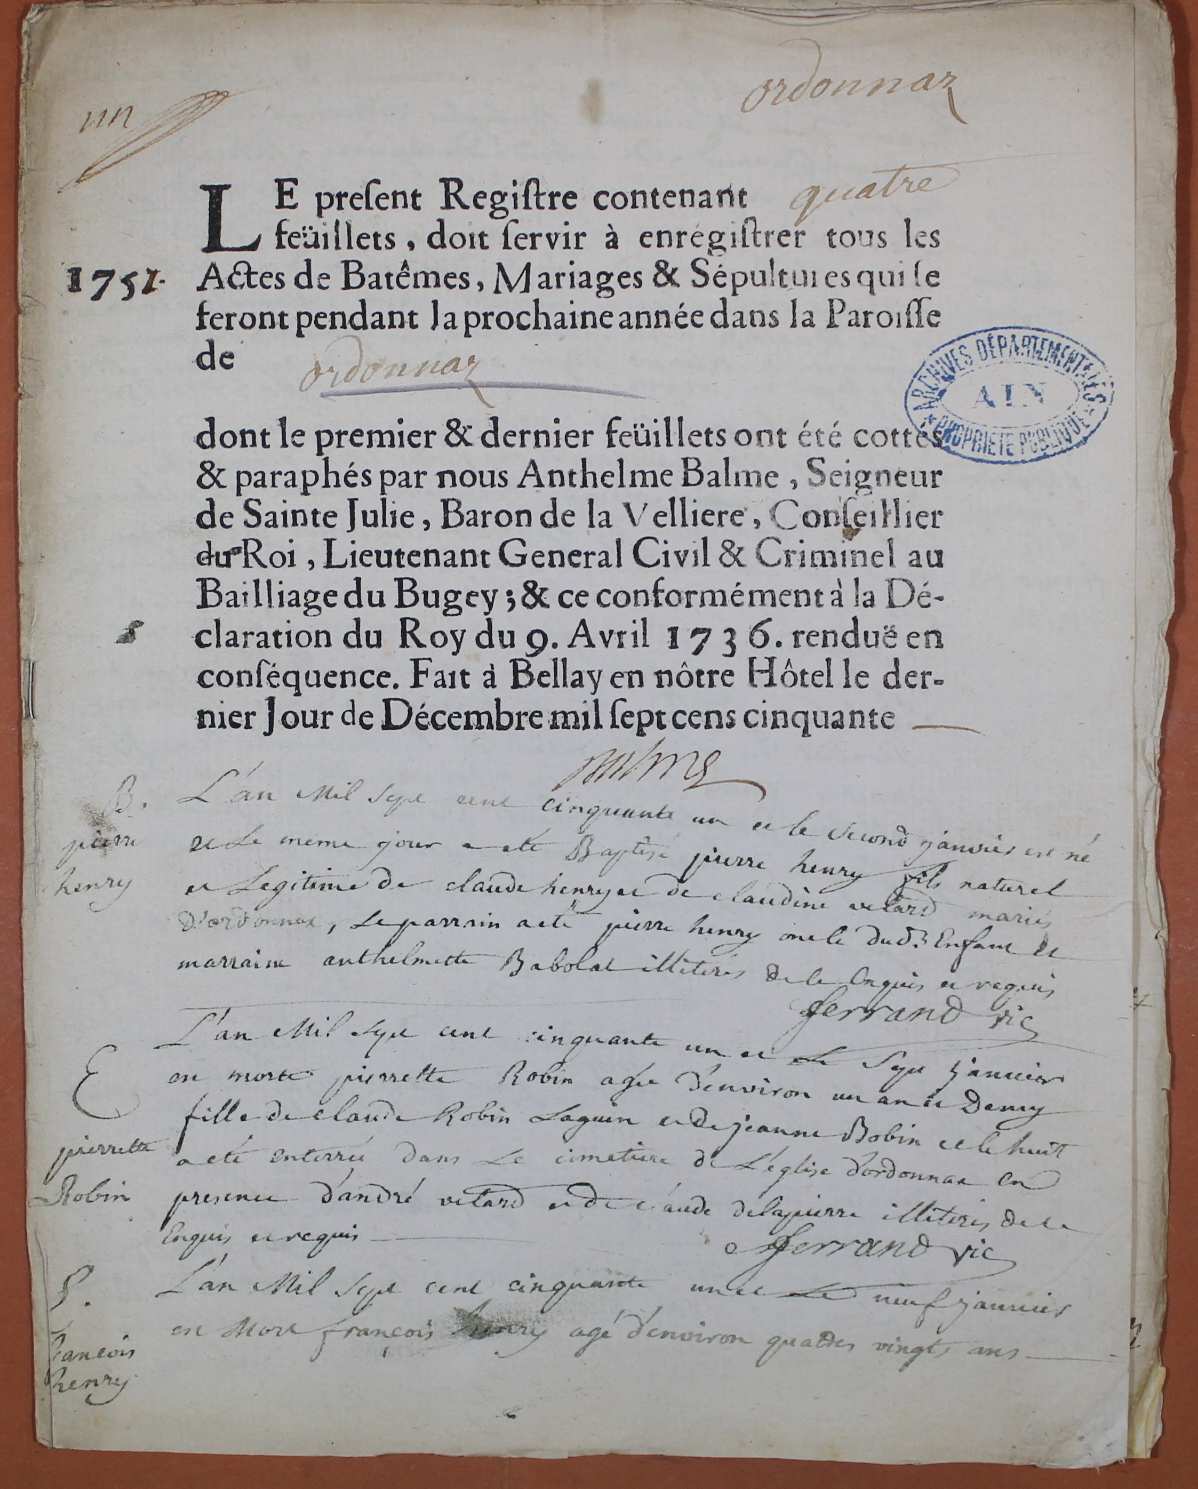 un
ordonnaz
LE preſent Regiſtre contenant quatre
feüillets, doit ſervir à enrégiſtrer tous les
1751. Actes de Batêmes, Mariages & Sépultures qui ſe
feront pendant la prochaine année dans la Paroiſſe
de ordonnaz
ARCHIVES DÉPARTEMENTALES
AIN
PROPRIÉTÉ PUBLIQUE
dont le premier & dernier feüillets ont été cottés
& paraphés par nous Anthelme Balme, Seigneur
de Sainte Julie, Baron de la Velliere, Conſeillier
du Roi, Lieutenant General Civil & Criminel au
Bailliage du Bugey; & ce conformément à la Dé-
claration du Roy du 9. Avril 1736. renduë en
conſéquence. Fait à Bellay en nôtre Hôtel le der-
nier Jour de Décembre mil ſept cens cinquante
Balme
B.
pierre
henry
L'an Mil Sept cent cinquante un et le second janvier est né
et Le meme jour a eté Baptisé pierre henry fils naturel
et Legitime de claude henry et de claudine vetard mariés
D'ordonnaz, Le parrain a eté pierre henry oncle dud. Enfant et
marraine anthelmette Babolat illiterés de ce Enquis et requis
ferrand vic
E
pierrette
Robin
L'an Mil Sept cent cinquante un et Le Sept janvier
est morte pierrette Robin agée d'environ un an et Demy
fille de claude Robin Laguin et De jeanne Bobin et le huit
a eté enterrée dans Le cimetiere de L'église d'ordonnaz en
presence d'andré vetard et de claude delapierre illiterés de ce
Enquis et requis
ferrand vic
S.
francois
henry
L'an Mil Sept cent cinquante un et Le neuf janvier
est Mort françois henry agé d'environ quatres vingts ans